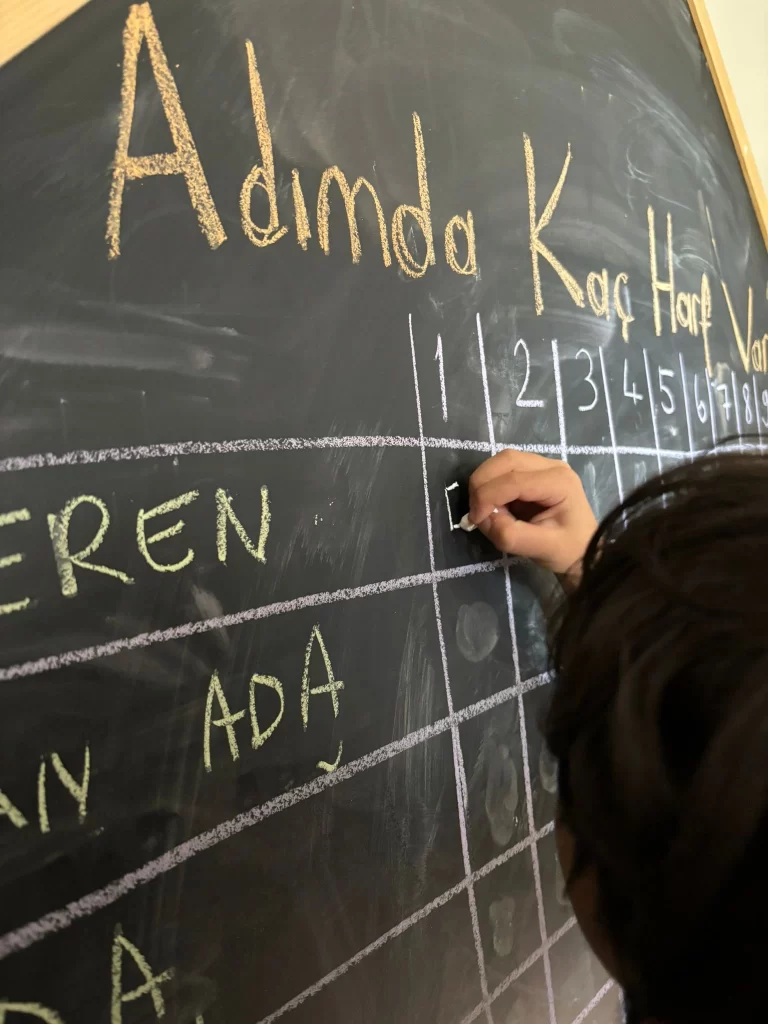 Adımda Kaç Harf Var
1 2 3 4 5 6 7 8 9
EREN
AN ADA